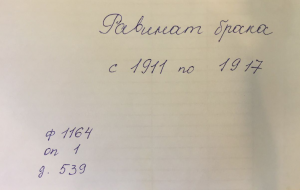 Равинат брака
с 1911 по 1917
ф 1164
оп 1
д. 539